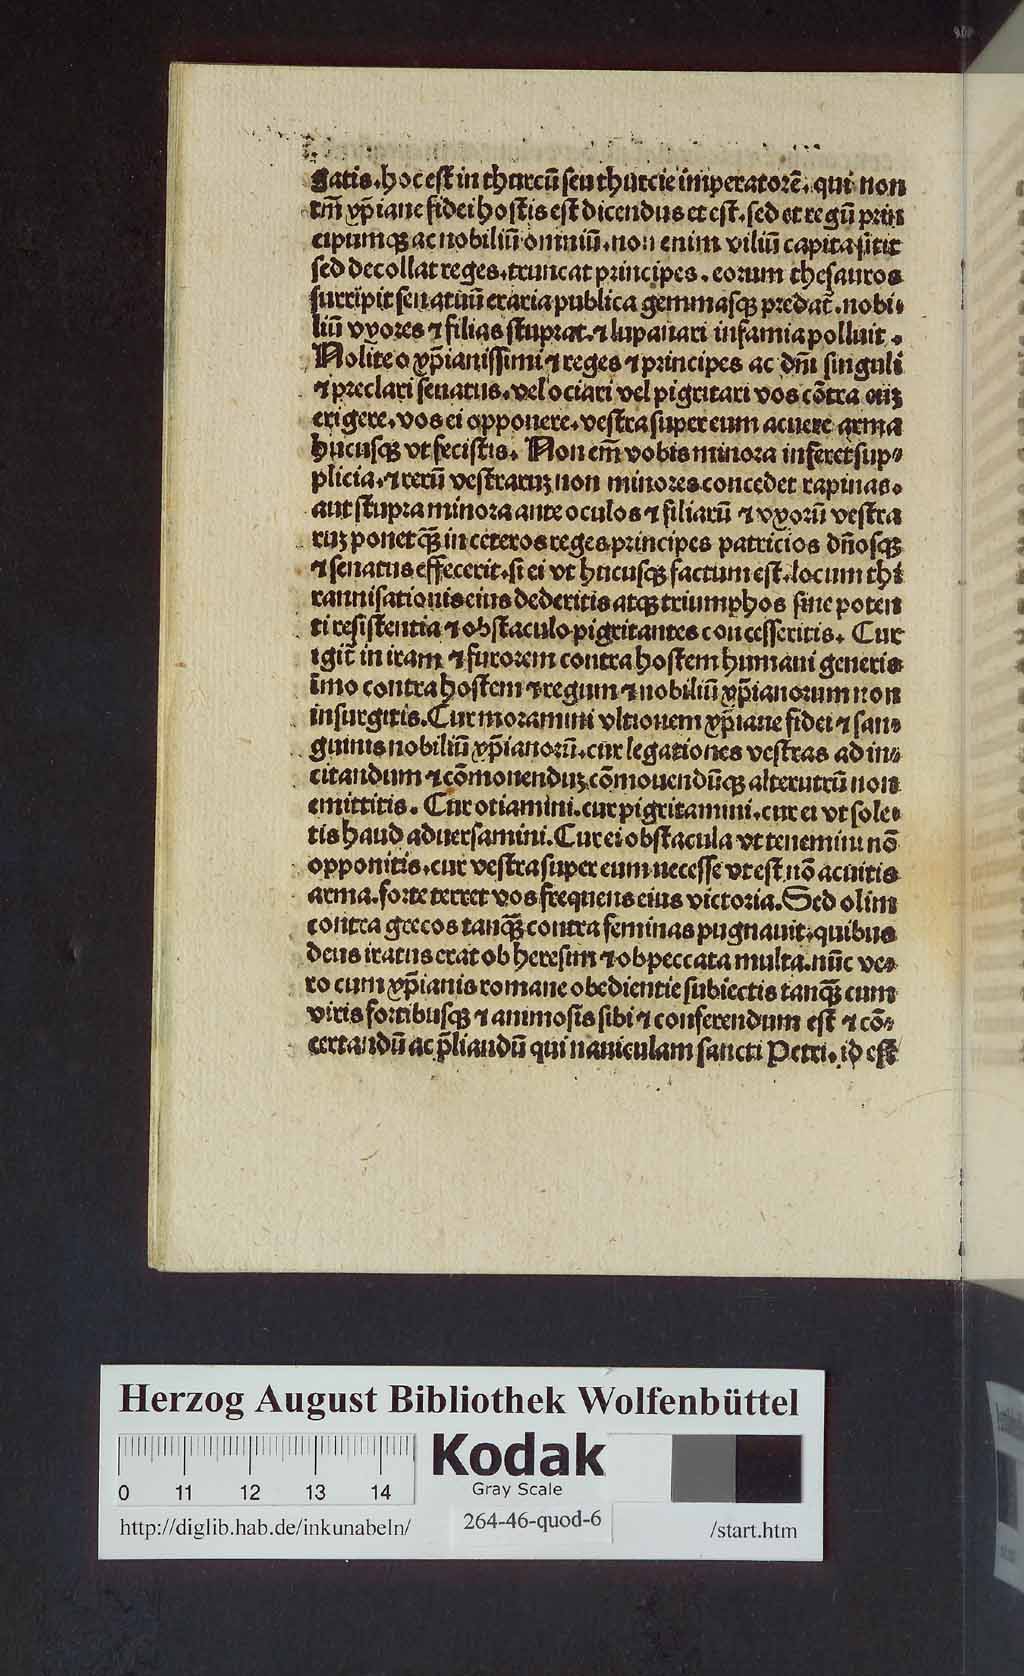 gatis.hoc est in thurcū seu thurcie imperatorē.qui non
tm̄ xp̄iane fidei hostis est dicendus et est.sed et regū prin
cipumqꝫ ac nobiliū omniū.non enim viliū capita sitit
sed decollat reges.truncat principes.eorum thesauros
surripit senatuū eraria publica gemmasqꝫ predat̄.nobi⸗
liū vxores ⁊ filias stuprat.⁊ lupanari infamia polluit.
Nolite o xp̄ianissimi ⁊ reges ⁊ principes ac dn̄i singuli
⁊ preclari senatus.vel ociari vel pigritari vos cōtra euꝫ
erigere.vos ei opponere.vestra super eum acuere arma
hucusqꝫ vt fecistis. Non em̄ vobis minora inferet sup⸗
plicia.⁊ rerū vestraruꝫ non minores concedet rapinas.
aut stupra minora ante oculos ⁊ filiarū ⁊ vxorū vestra
ruꝫ ponet qꝫ̄ in ceteros reges principes patricios dn̄osqꝫ
⁊ senatus effecerit.si ei vt hucusqꝫ factum est.locum thi
rannisationis eius dederitis atqꝫ triumphos sine poten
ti resistentia ⁊ obstaculo pigritantes concesseritis. Cur
igit̄ in iram ⁊ furorem contra hostem humani generis
īmo contra hostem ⁊ regum ⁊ nobiliū xp̄ianorum non
insurgitis.Cur moramini vltionem xp̄iane fidei ⁊ san⸗
guinis nobiliū xp̄ianorū.cur legationes vestras ad in⸗
citandum ⁊ cōmonenduꝫ cōmouendūqꝫ alterutrū non
emittitis. Cur otiamini.cur pigritamini.cur ei vt sole⸗
tis haud aduersamini.Cur ei obstacula vt tenemini nō
opponitis.cur vestra super eum necesse vt est nō acuitis
arma.forte terret vos frequens eius victoria.Sed olim
contra grecos tanqꝫ̄ contra feminas pugnauit.quibus
deus iratus erat ob heresim ⁊ ob peccata multa.nūc ve⸗
ro cum xp̄ianis romane obedientie subiectis tanqꝫ̄ cum
viris fortibusqꝫ ⁊ animosis sibi ⁊ conferendum est ⁊ cō⸗
certandū ac p̄liandū qui nauiculam sancti Petri.id est
Herzog August Bibliothek Wolfenbüttel
Kodak
Gray Scale
0 11 12 13 14
http://diglib.hab.de/inkunabeln/ 264-46-quod-6 /start.htm